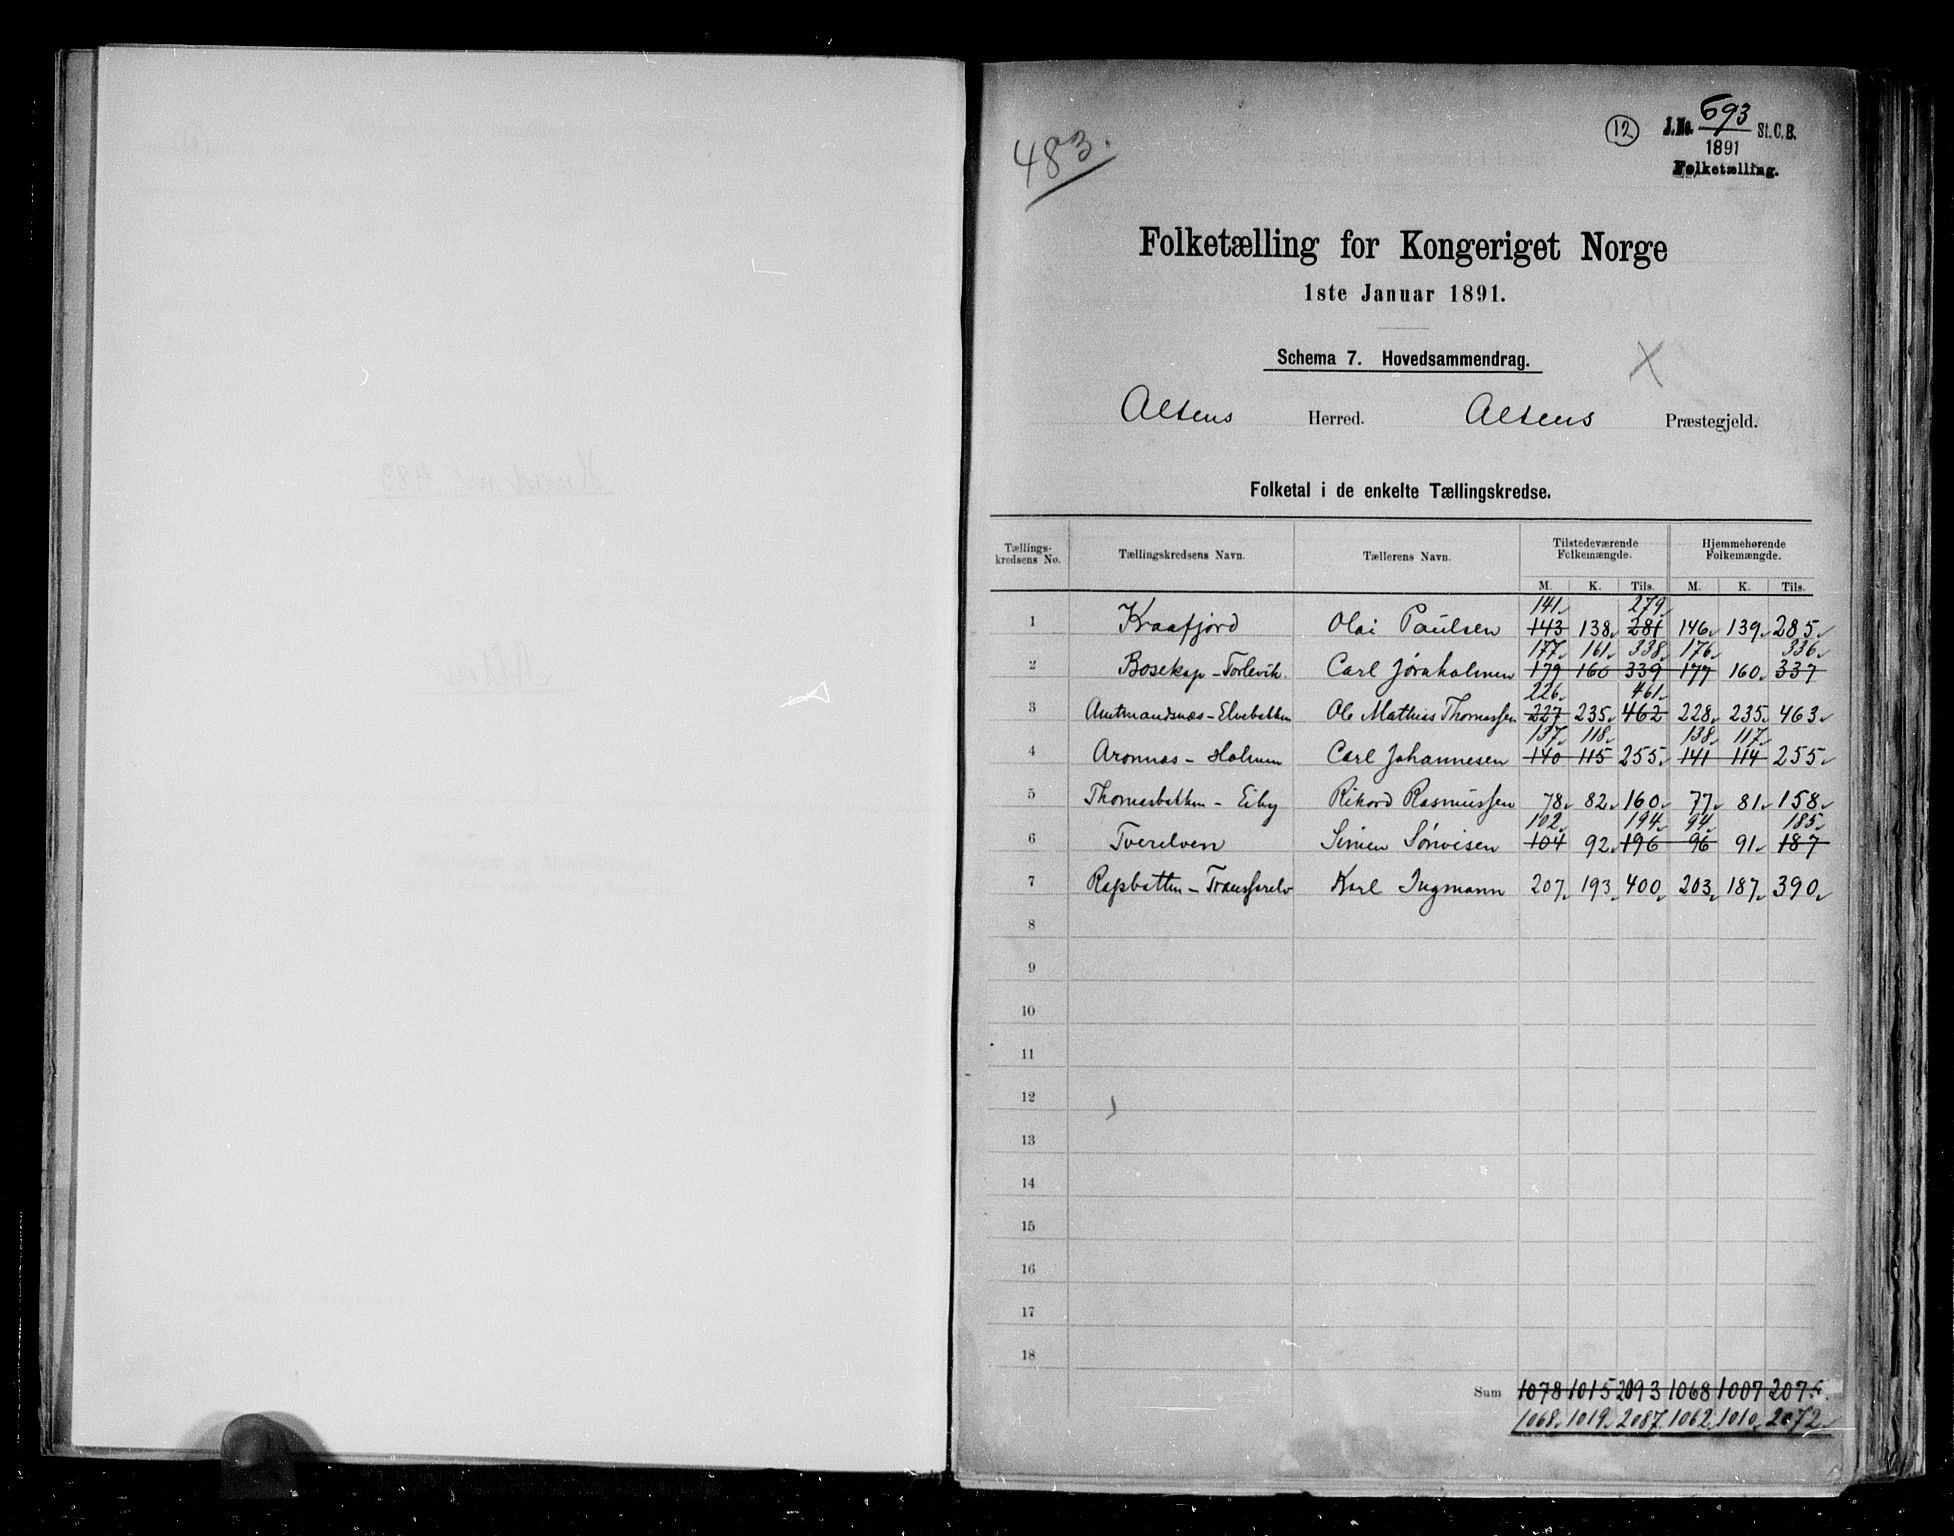 483.
12
J. No. 593 St. C. B.
1891
Folketælling.
Folketælling for Kongeriget Norge
1ste Januar 1891.
Schema 7. Hovedsammendrag.
Altens Herred. Altens Præstegjeld.
Folketal i de enkelte Tællingskredse.
Tællings-kredsens No. Tællingskredsens Navn. Tællerens Navn. Tilstedeværende Folkemængde. Hjemmehørende Folkemængde.
M. K. Tils. M. K. Tils.
141 279
1 Kraafjord Olai Paulsen 143 138 281 146 139 285
177 161 338 176 336
2 Bosekop - Carl 179 160 339 177 160 337
226 461
3 Amtmandsnæs - Elvebakken Ole Mathias Thomassen 227 235 462 228 235 463
137 118 138 117
4 Aronnæs - Holmen Carl Johannesen 140 115 255 141 114 255
5 Thomasbakken - Eiby Rikard Rasmussen 78 82 160 77 81 158
102 194 94 185
6 Tverelven Simen 104 92 196 96 91 187
7 - Karl Ingmann 207 193 400 203 187 390
8
9
10
11
12
13
14
15
16
17
18
Sum 1078 1015 2093 1068 1007 2075
1068 1019 2087 1062 1010 2072